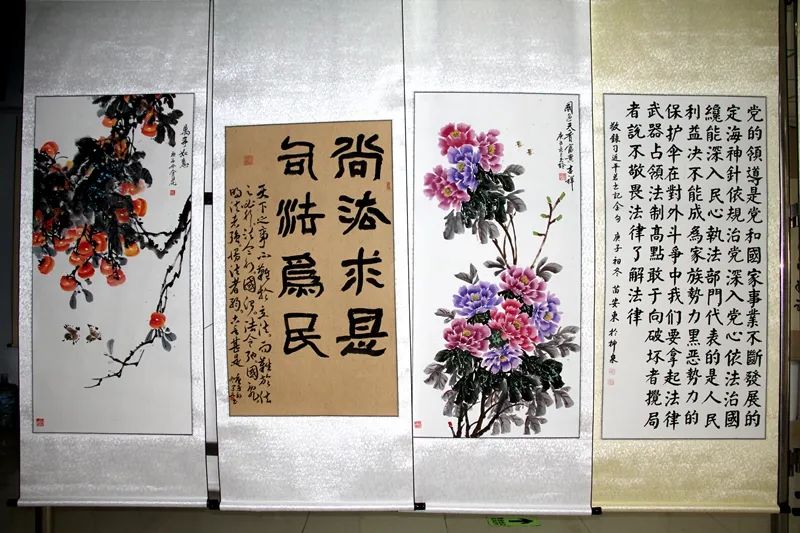 党的領導是党和國家事業不斷發展的
定海神針依規治党深入党心依法治國
纔能深入民心執法部門代表的是人民
利益决不能成為家族勢力黑恶勢力的
保护伞在對外斗争中我们要拿起法律
武器占領法制高點敢于向破坏者攪局
者説不敬畏法律了解法律
敬録习近平总书记金句 庚子初冬 苗安東於
國色天香富貴吉祥
尚法求是
司法爲民
天下之事不難於立法而難於法
之必行法令行則國治法令弛國亂
萬事如意